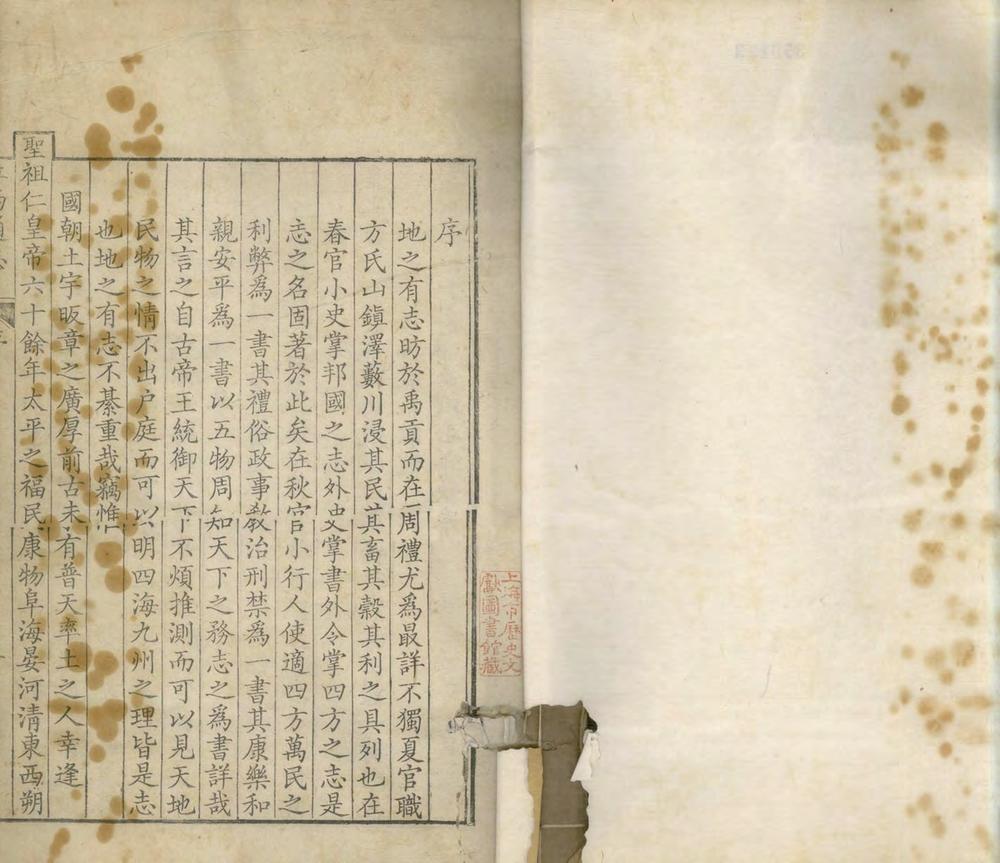 序
地之有志昉於禹貢而在周禮尤爲最詳不獨夏官職
方氏山鎮澤藪川浸其民其畜其穀其利之具列也在
春官小史掌邦國之志外史掌書外令掌四方之志是
志之名固著於此矣在秋官小行人使適四方萬民之
利弊爲一書其禮俗政事敎治刑禁爲一書其康樂和
親安平爲一書以五物周知天下之務志之爲書詳哉
其言之自古帝王統御天下不煩推測而可以見天地
民物之情不出户庭而可以明四海九州之理皆是志
也地之有志不綦重哉竊惟
國朝土宇昄章之廣厚前古未有普天率土之人幸逢
聖祖仁皇帝六十餘年太平之福民康物阜海晏河清東西朔
上海市歷史文
獻圖書館藏